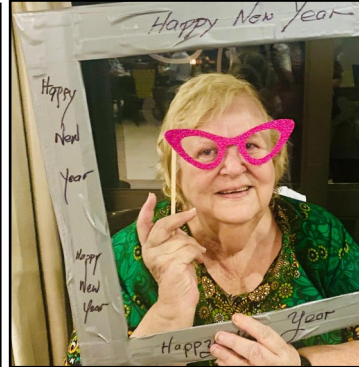 Happy New Year
Happy
New
Year
Happy
New
Year
Happy
Year